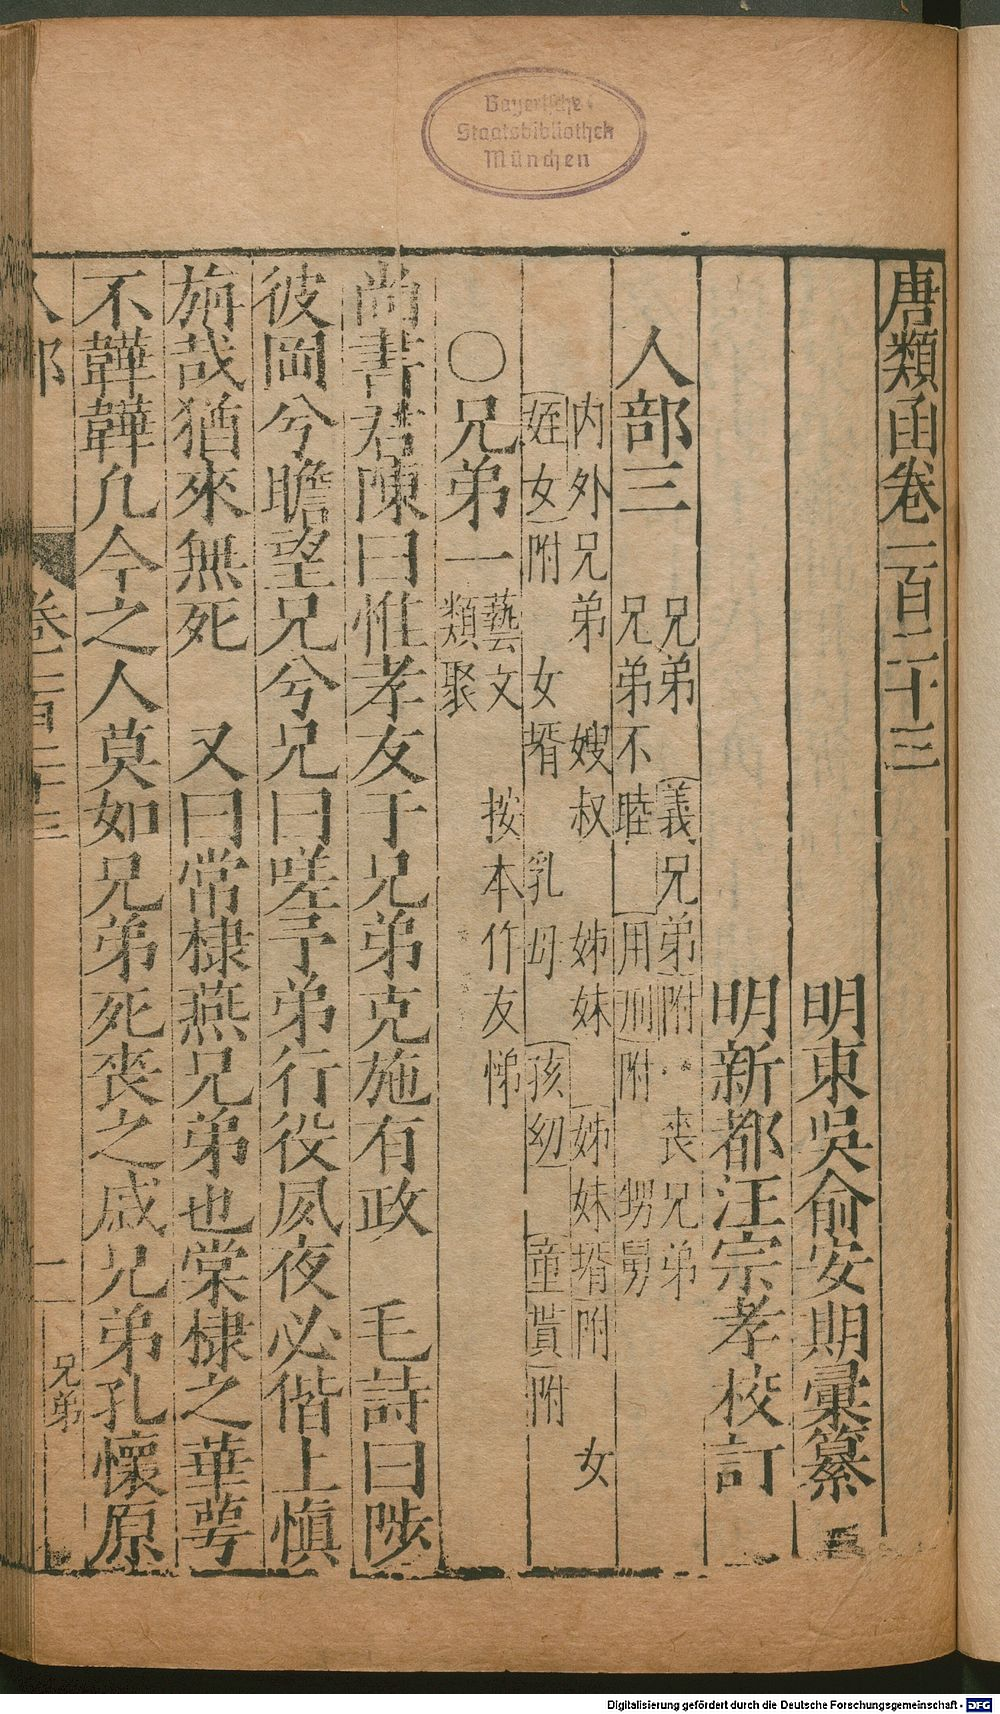 Bayerische
Staatsbibliothek
München
唐類函卷一百二十三
明東吳俞安期彙纂
明新都汪宗孝校訂
人部三
兄弟 義兄弟附 喪兄弟
兄弟不睦 用刑附 甥舅
内外兄弟 嫂叔 姊妹 姊妹壻附 女
姪女附 女壻 乳母 孩幼 童
附
〇兄弟一
藝文 按本作友悌
類聚
尚書君陳曰惟孝友于兄弟克施有政 毛詩曰陟
彼岡兮瞻望兄兮兄曰嗟予弟行役夙夜必偕上慎
旃哉猶來無死 又曰常棣燕兄弟也棠棣之華萼
不韡韡凡今之人莫如兄弟死喪之戚兄弟孔懷原
人部
卷一百二十三
一
兄弟
Digitalisierung gefördert durch die Deutsche Forschungsgemeinschaft - DFG